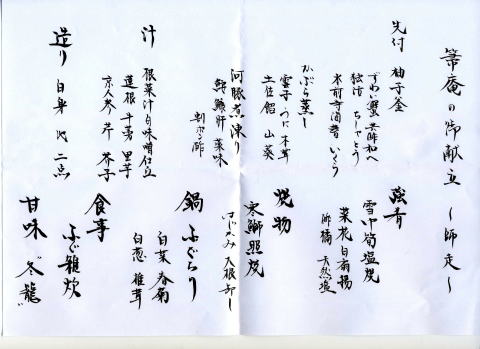 箒庵の御献立 〜師走〜
先付 柚子釜
ずわい蟹 共酢和へ
独活 ちしゃとう
木前寺酒菩 いくら
かぶら蒸し
雲子 うに 木茸
土佐餡 山葵
河豚煮凍り
鮟鱇肝 薬味
割ポン酢
汁
根菜汁 白味噌仕立
蓮根 干勇 里芋
京人参 芹 芥子
造り 白身 比 二点
強肴
雪中筍塩焼
菜花白扇揚
酢橘 天然塩
焼物
寒鰤照焼
はじかみ 大根卸し
鍋 ふぐちり
白菜 春菊
白葱 椎茸
食事
ふぐ雑炊
甘味 "冬籠"